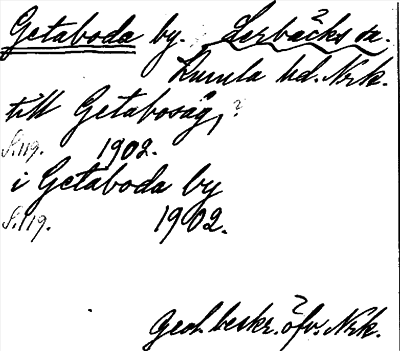 Getaboda by. Lerbäcks sn.
Kumla hd. Nrk.
till Getabosåg,?
S. 119. 1902.
i Getaboda by
S. 119. 1902.
Geol. beskr. öfv. Nrk.